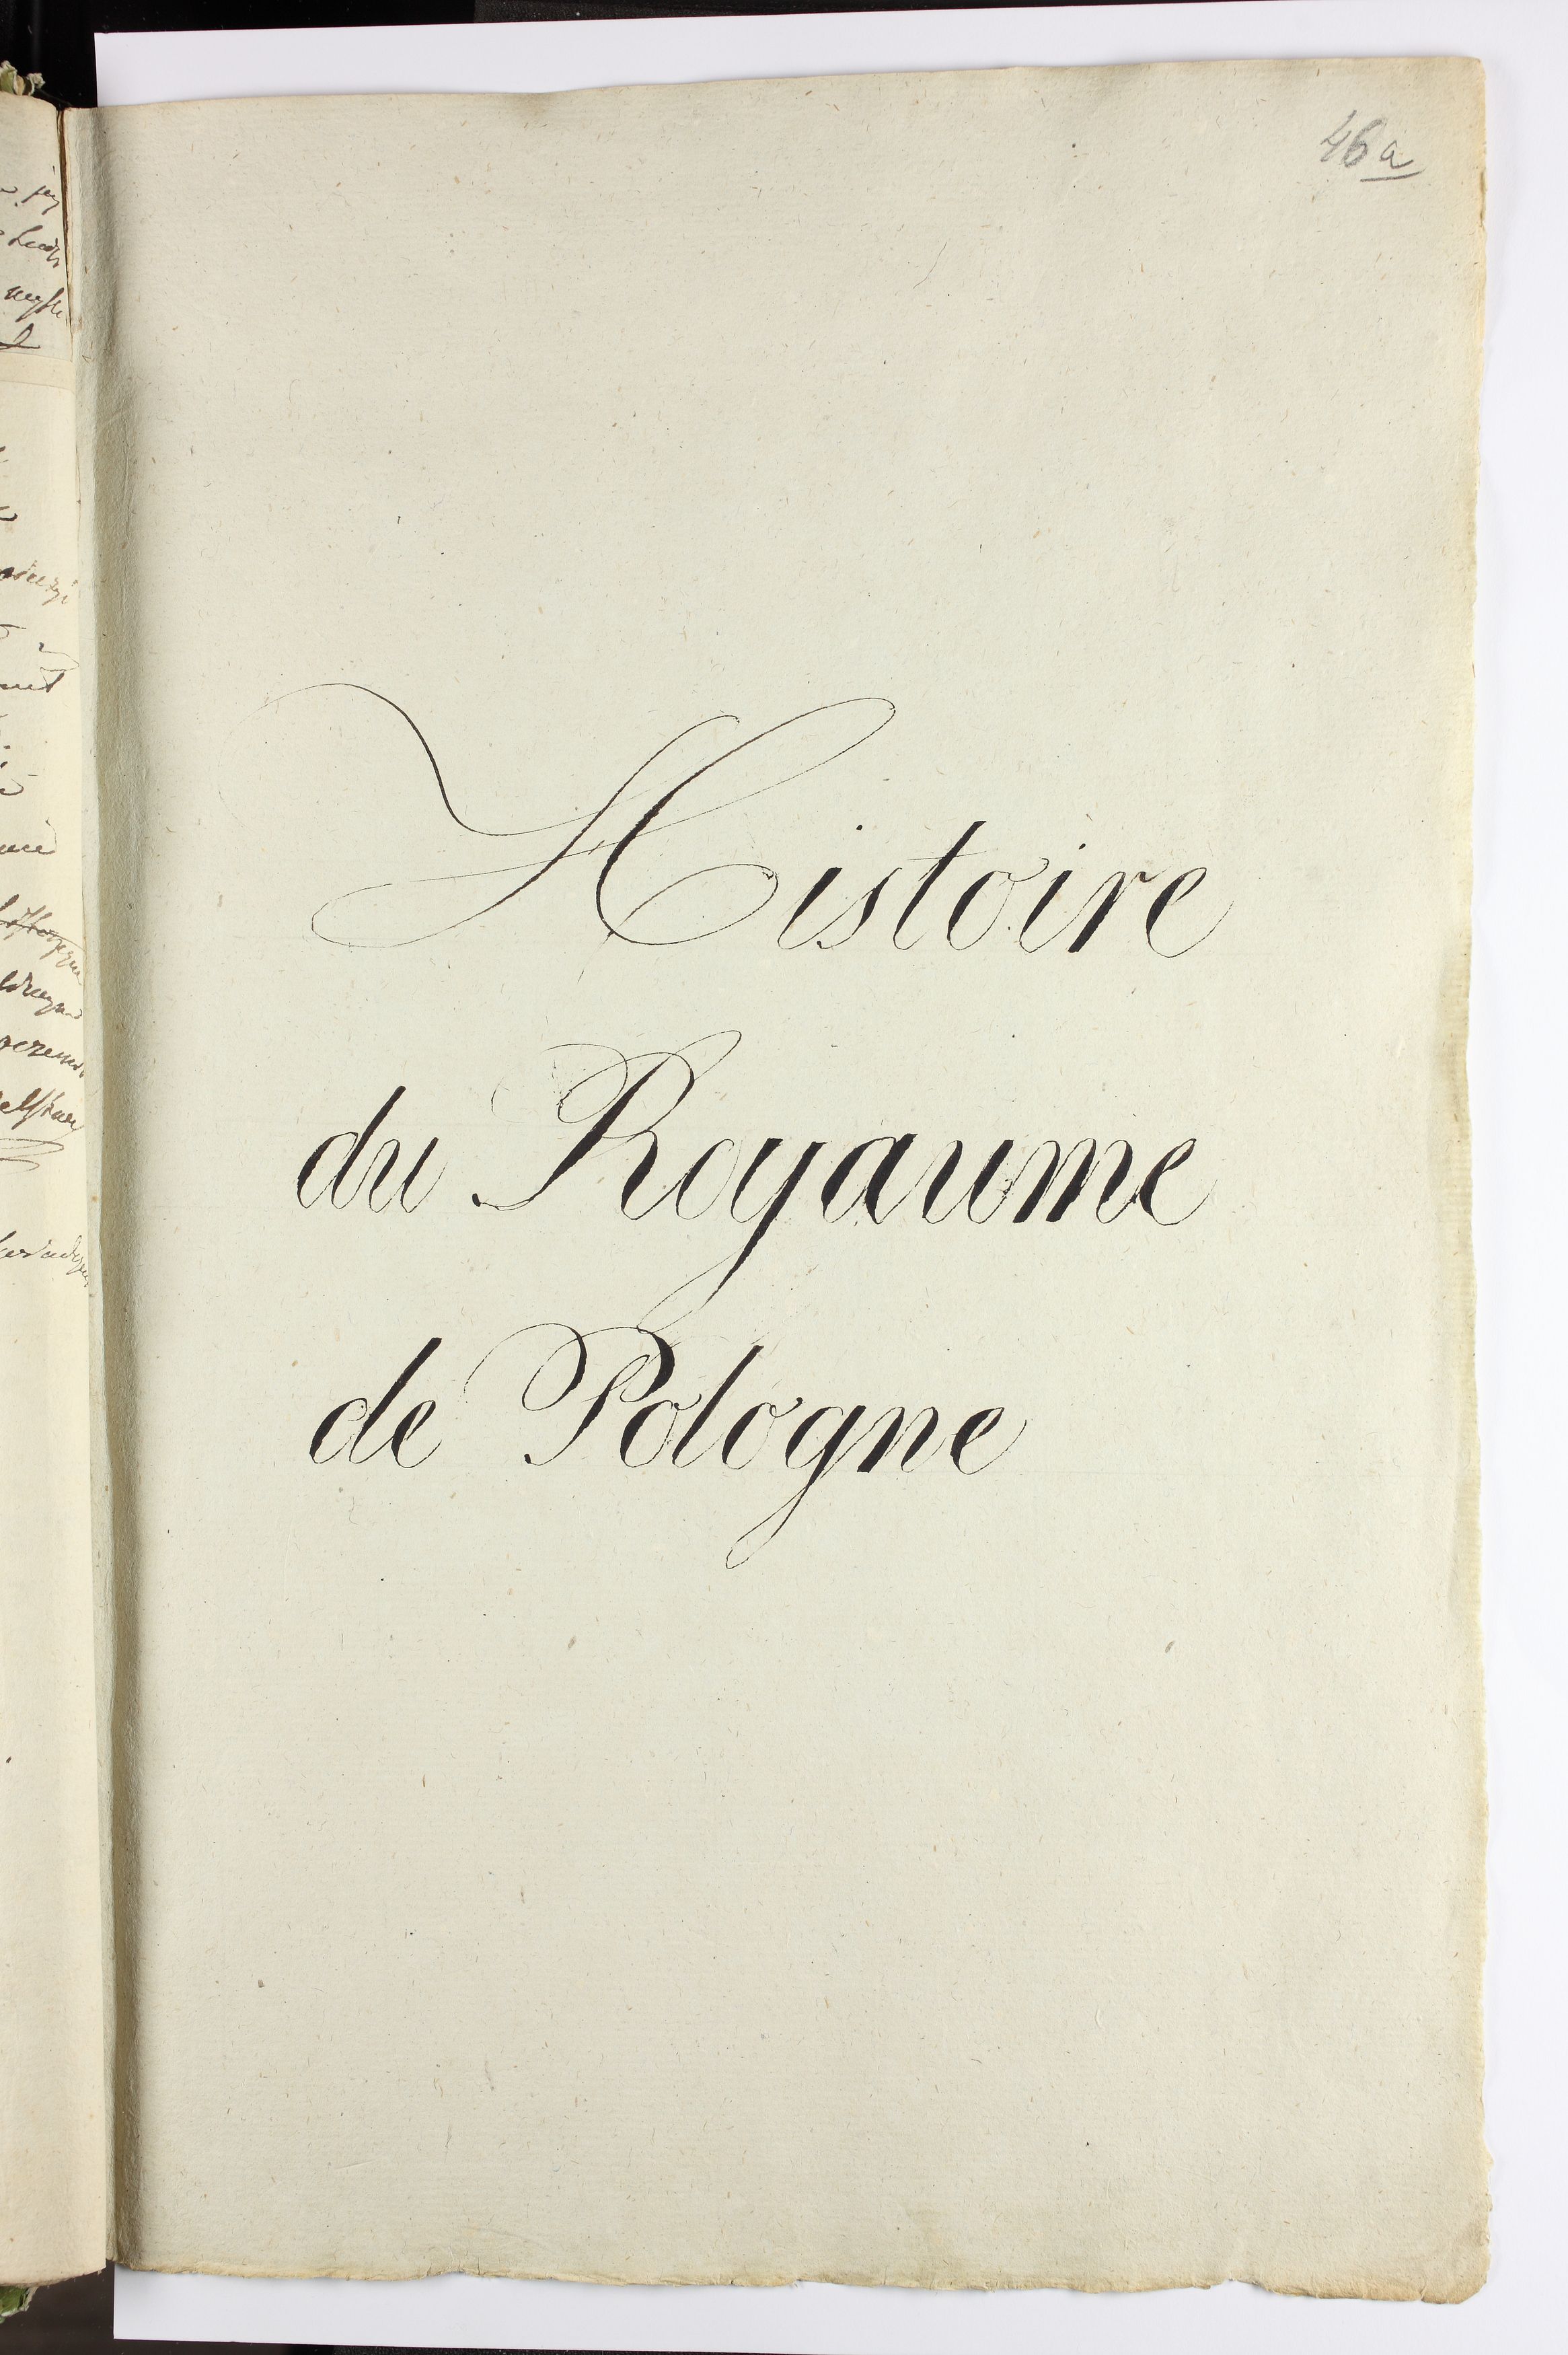 46a
Histoire
du Royaume
de Pologne